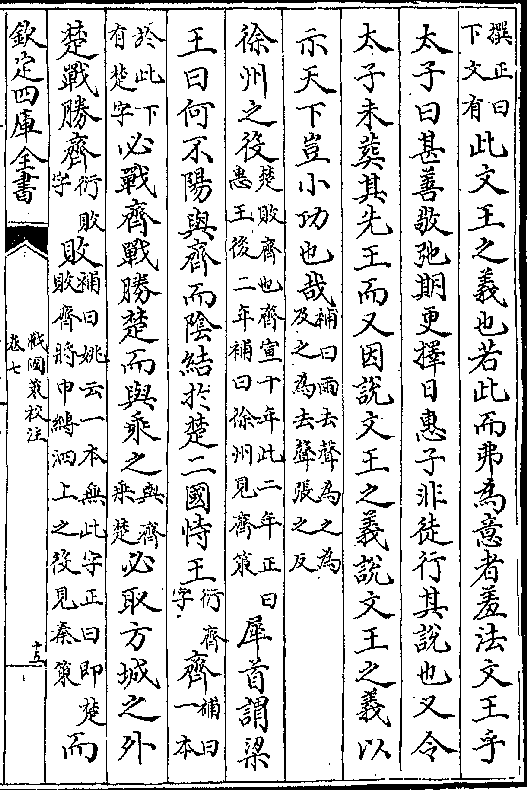 撰正曰下文有此文王之義也若此而弗為意者羞法文王乎
太子曰甚善敬弛期更擇日惠子非徒行其說也又令
太子未葬其先王而又因說文王之義說文王之義以
示天下豈小功也哉補曰雨去聲為之為及之為去聲張之反
徐州之役楚敗齊也齊宣十年此二年正曰惠王後二年補曰徐州見齊策犀首謂梁
王曰何不陽與齊而陰結於楚二國恃王衍齊字齊補曰一本
於此下有楚字必戰齊戰勝楚而與乘之與齊乘楚必取方城之外
楚戰勝齊衍敗字敗補曰姚云一本無此字正曰即楚敗齊將申縳泗上之役見秦策而
欽定四庫全書
戰國策校注
卷七
十五